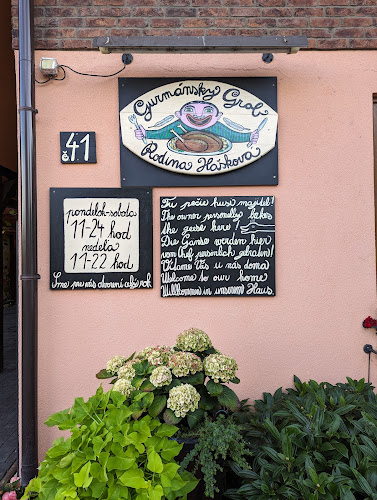 Gurmánsky Grob
Rodina Háškova
č. 41
pondelok-sobota
11-24 hod
nedeľa
11-22 hod
Sme pre vás otvorení celý rok
Tu pečie husi majiteľ!
The owner personally bakes
the geese here!
Die Gänse werden hier
von Chef persönlich gebraten!
Vítame Vás u nás doma
Welcome to our home
Willkommen in unserem Haus.